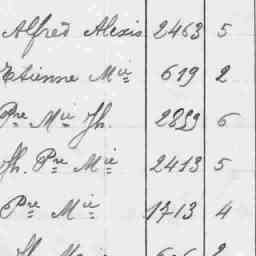 Alfred Alexis 2463 5
Etienne Mie 619 2
Pre Mie Jh. 2899 6
Jh. Pre Mie 2413 5
Pre Mie 1713 4